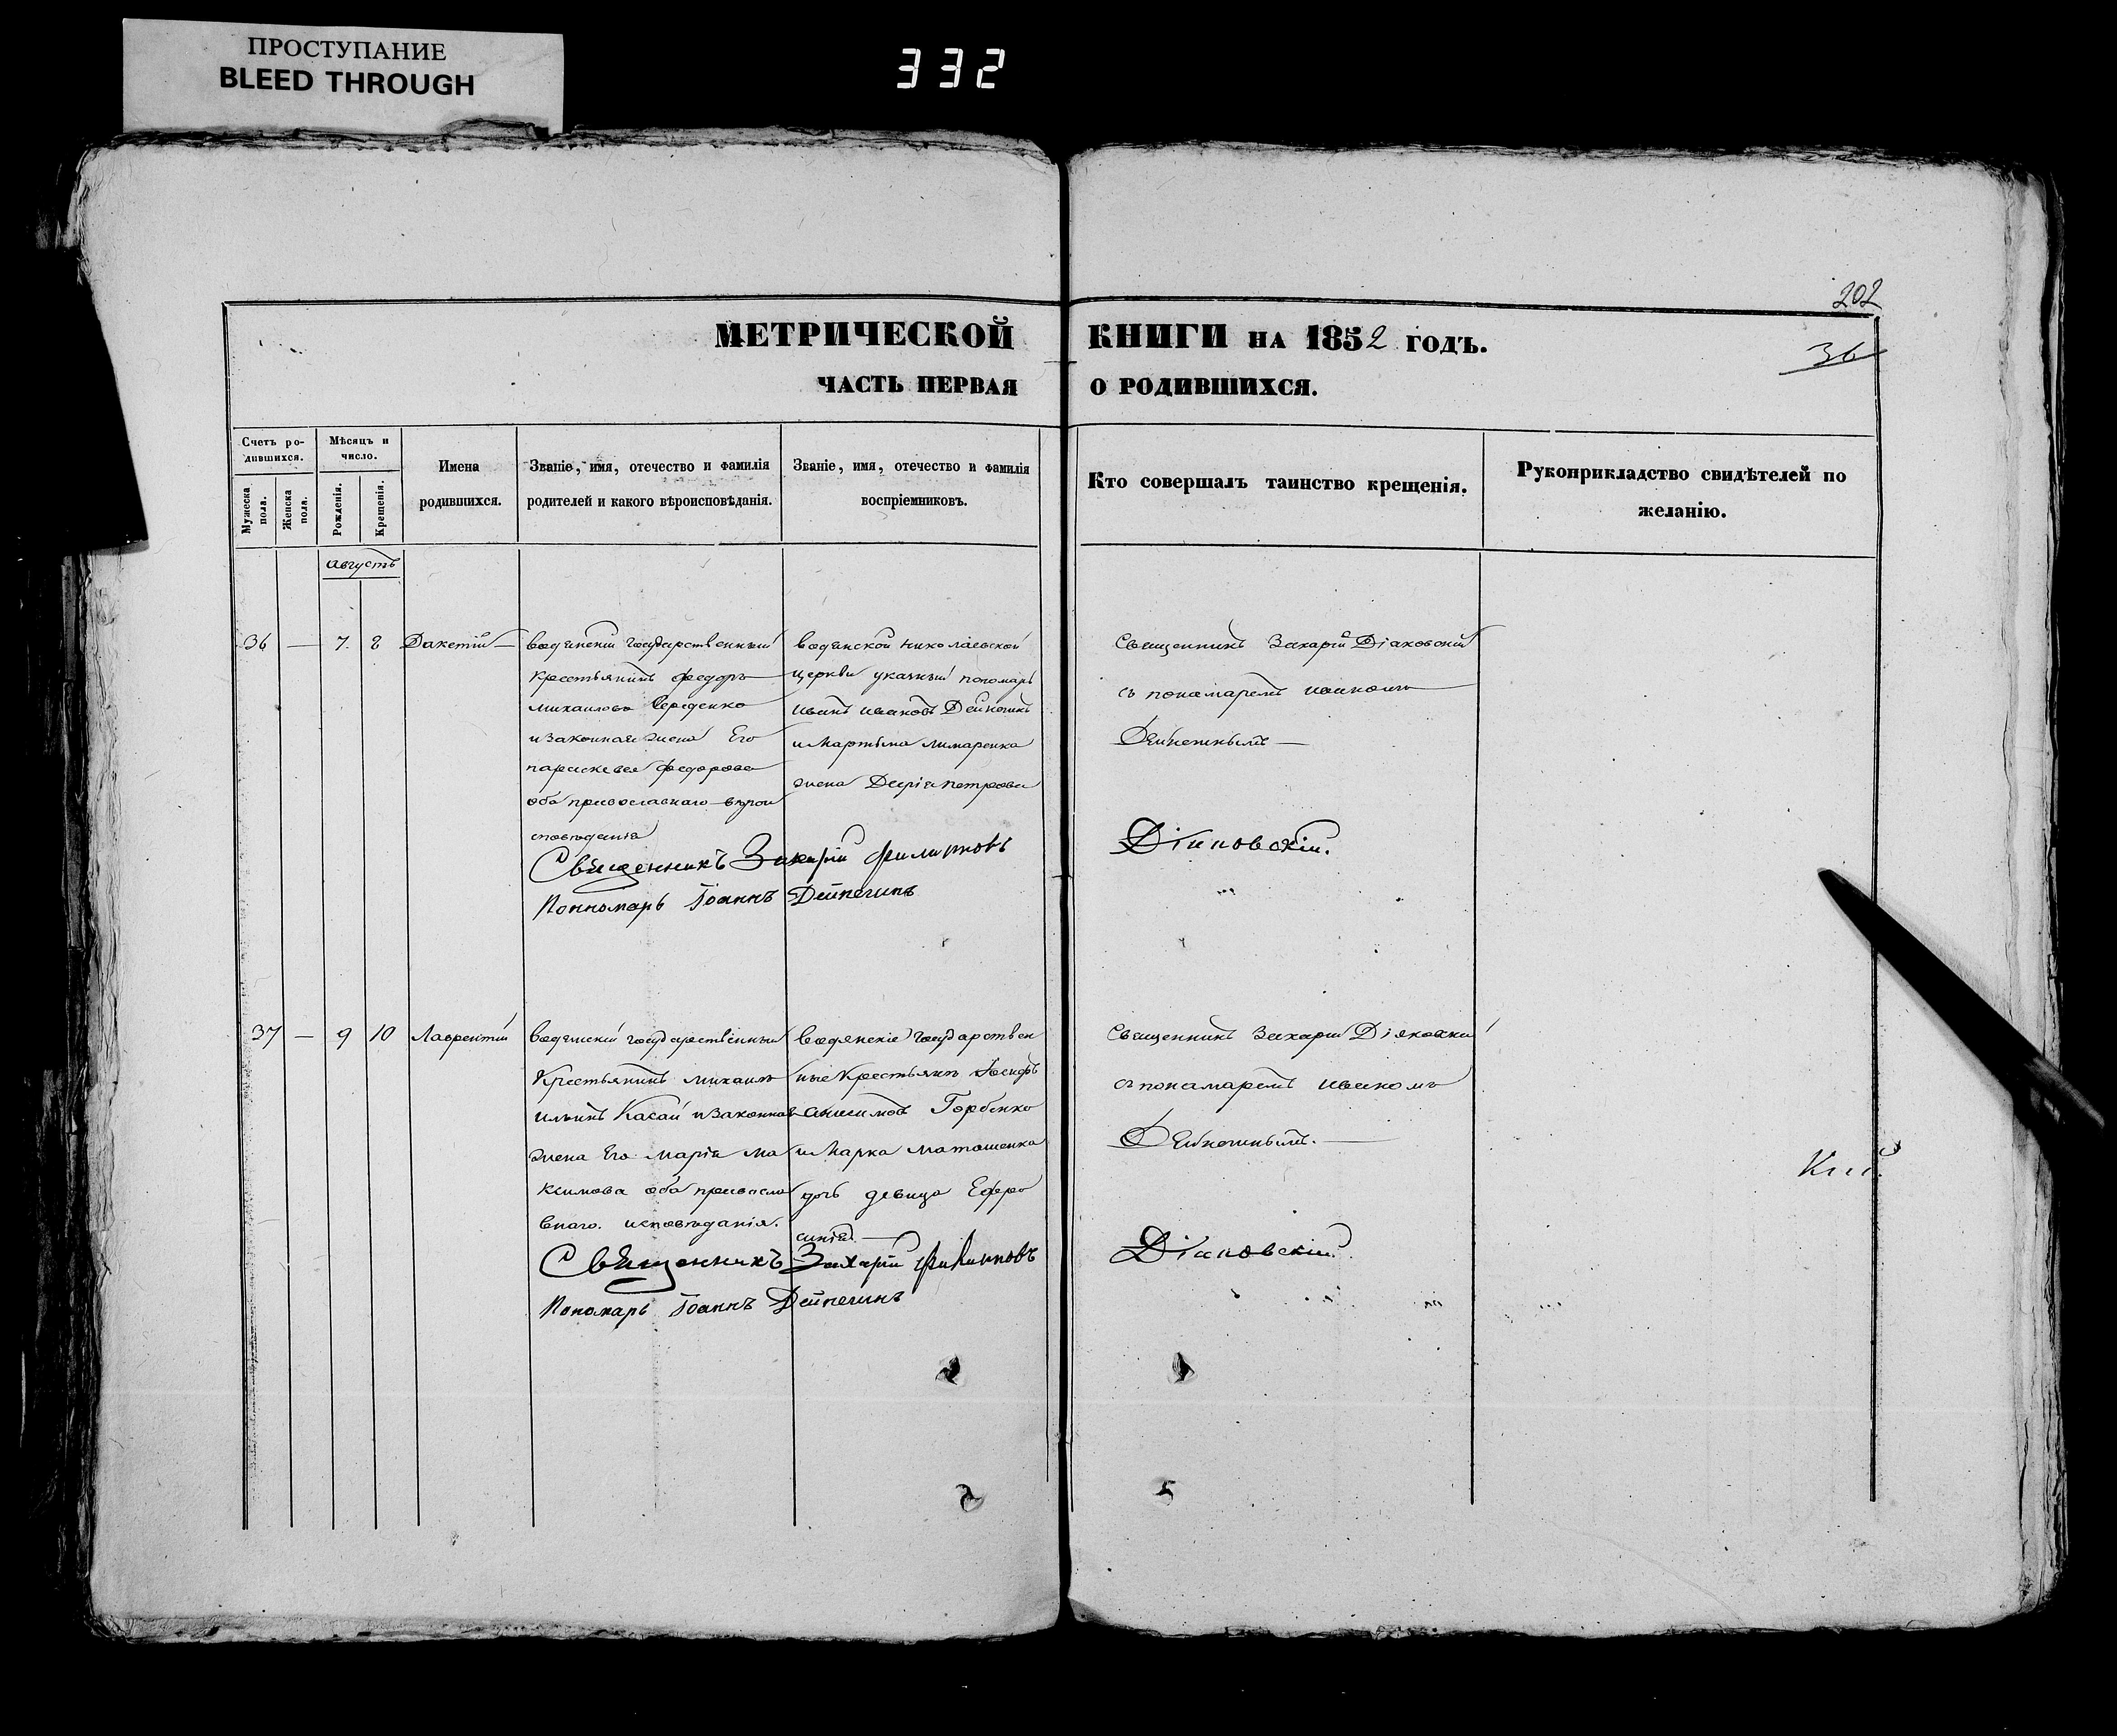 ПРОСТУПАНИЕ
BLEED THROUGH
332
202
36
МЕТРИЧЕСКОЙ КНИГИ НА 1852 ГОДЪ.
ЧАСТЬ ПЕРВАЯ О РОДИВШИХСЯ.
Счетъ ро-
дившихся.
Мужеска
пола.
Женска
пола.
Мѣсяцъ и
число.
Рожденія.
Крещенія.
Имена
родившихся.
Званіе, имя, отечество и фамилія
родителей и какого вѣроисповѣданія.
Званіе, имя, отечество и фамилія
воспріемниковъ.
Кто совершалъ таинство крещенія.
Рукоприкладство свидѣтелей по
желанію.
Августъ
36 — 7. 8
водянскій государственный
крестьянинъ федоръ
михаиловъ Середенко
и законная жена Его
параскева федорова
оба православнаго вѣрои
сповѣданія
водянской николаевской
церкви указный пономарь
иванъ ивановъ
и Мартына лимаренка
жена Дарія петрова
Священникъ Захарій Діаковскій
съ понамаремъ иваномъ
Священникъ Захарій Филиповъ Діаковскій.
Пономарь Іоаннъ
37 — 9 10 Лаврентій
водянскій государственный
Крестьянинъ михаилъ
ильинъ Касай и законная
жена Его марія ма
ксимова оба правосла
внаго. исповѣданія.
водянскіе государствен
ные Крестьяне Іосифъ
анисимовъ Горбенко
и Марка матошенка
дочь девица Ефро
синія. —
Священникъ Захарій Діяковскій
съ понамаремъ иваномъ
Священникъ Захарій Филиповъ Діаковскій.
Пономарь Іоаннъ